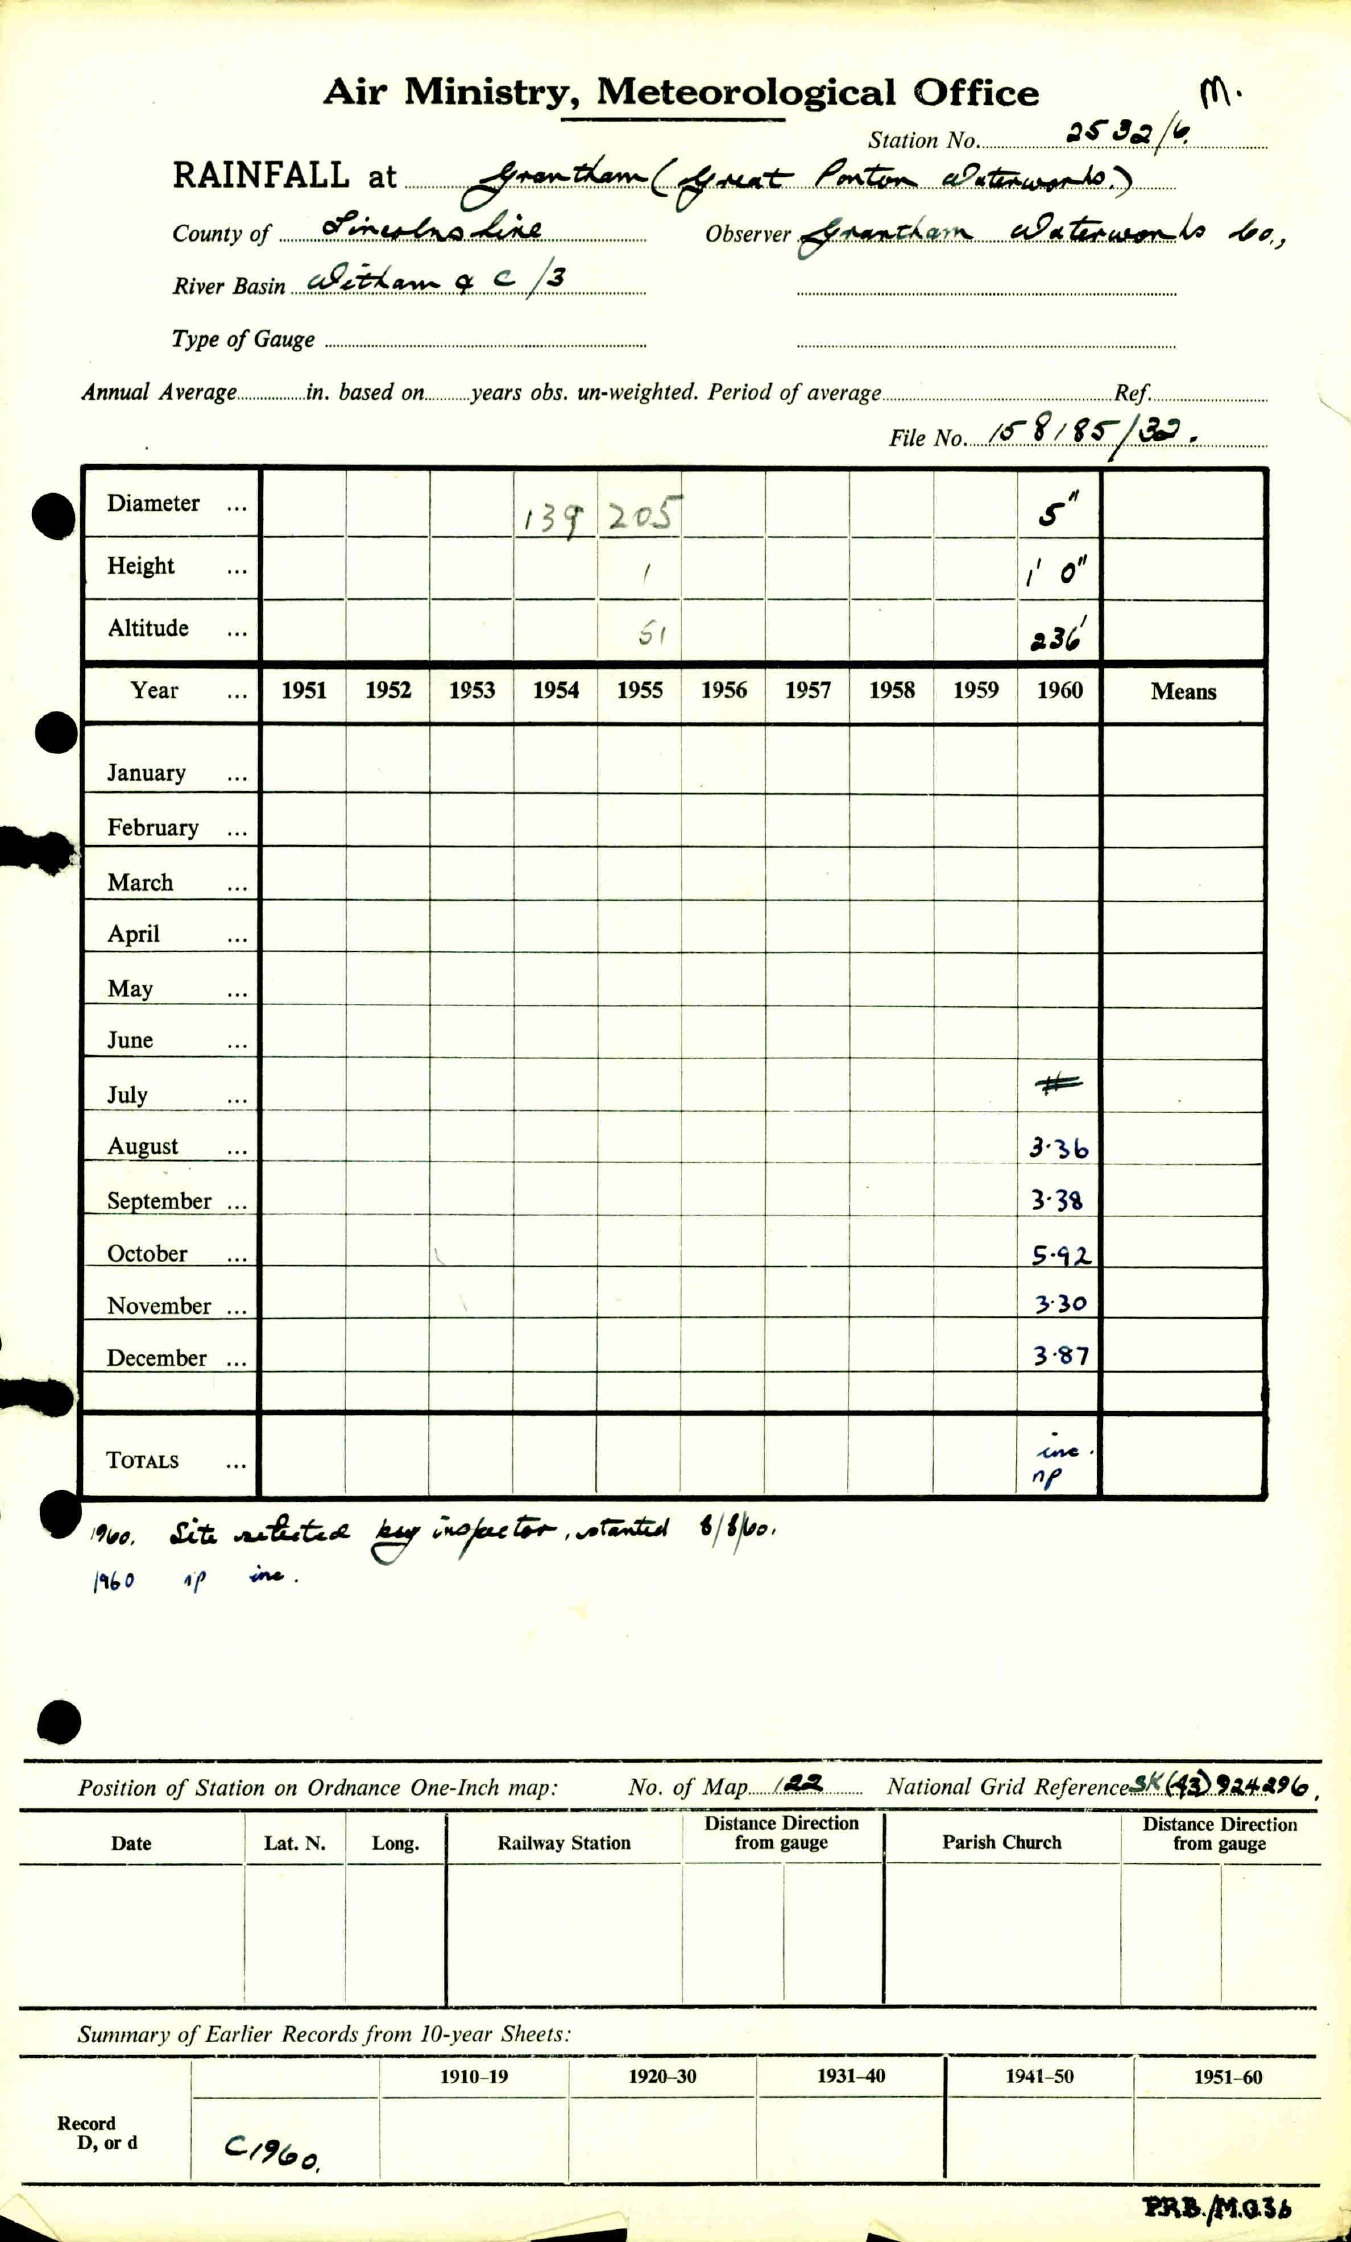 Air Ministry, Meteorological Office
M.
Station No. 2532/6.
RAINFALL at Grantham (Great Ponton Waterworks.)
County of Lincolnshire Observer Grantham Waterworks Co.,
River Basin Witham & C /3
Type of Gauge
Annual Average in. based on years obs. un-weighted. Period of average Ref.
File No. 158185/32.
Diameter ... 139 205 5"
Height ... 1 1' 0"
Altitude ... 51 236'
Year ... 1951 1952 1953 1954 1955 1956 1957 1958 1959 1960 Means
January ...
February ...
March ...
April ...
May ...
June ...
July ...
August ... 3.36
September ... 3.38
October ... 5.92
November ... 3.30
December ... 3.87
TOTALS ... inc.
np
1960. Site selected by inspector, started 8/8/60.
1960 np inc.
Position of Station on Ordnance One-Inch map: No. of Map 122 National Grid Reference SK (43) 924296.
Date Lat. N. Long. Railway Station Distance Direction from gauge Parish Church Distance Direction from gauge
Summary of Earlier Records from 10-year Sheets:
1910–19 1920–30 1931–40 1941–50 1951–60
Record
D, or d C1960.
P.R.B./M.O.36